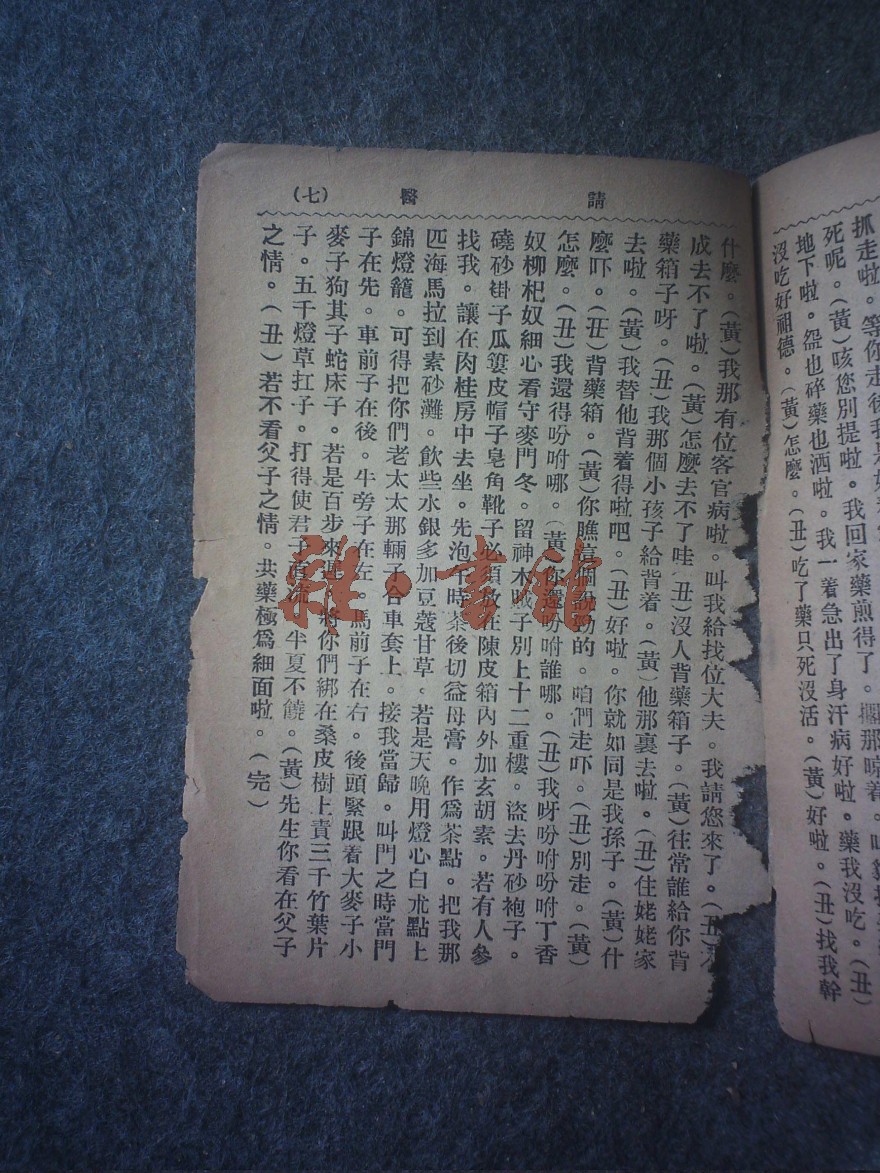 抓走啦。等你走後我
死呢。(黃)咳您別提啦。我回家藥煎得了。擱那涼着。
地下啦。盌也碎藥也洒啦。我一着急出了身汗病好啦。藥我沒吃。(丑)
沒吃好祖德。(黃)怎麼。(丑)吃了藥只死沒活。(黃)好啦。(丑)找我幹
請醫(七)
什麼。(黃)我那有位客官病啦。叫我給找位大夫。我請您來了。(丑)
成去不了啦。(黃)怎麼去不了哇(丑)沒人背藥箱子。(黃)往常誰給你背
藥箱子呀。(丑)我那個小孩子給背着。(黃)他那裏去啦。(丑)住姥姥家
去啦。(黃)我替他背着得啦吧。(丑)好啦。你就如同是我孫子。(黃)什
麼吓。(丑)背藥箱。(黃)你瞧這個說勁的。咱們走吓。(丑)別走。(黃)
怎麼。(丑)我還得吩咐哪。(黃)你還吩咐誰哪。(丑)我呀吩咐吩咐丁香
奴柳杞奴細心看守麥門冬。留神木賊子別上十二重樓。盜去丹砂袍子。
磽砂褂子瓜蔞皮帽子皂角靴子必須放在陳皮箱內外加玄胡素。若有人參
找我。讓在肉桂房中去坐。先泡千時茶後切益母膏。作爲茶點。把我那
匹海馬拉到素砂灘。飲些水銀多加豆蔻甘草。若是天晚用燈心白朮點上
錦燈籠。可得把你們老太太那輛子合車套上。接我當歸。叫門之時當門
子在先。車前子在後。牛旁子在左。馬前子在右。後頭緊跟着大麥子小
麥子狗其子蛇床子。若是百步來遲。將你們綁在桑皮樹上責三千竹葉片
子。五千燈草扛子。打得使君子直流。半夏不饒。(黃)先生你看在父子
之情。(丑)若不看父子之情。共藥極爲細面啦。(完)
雜·書館